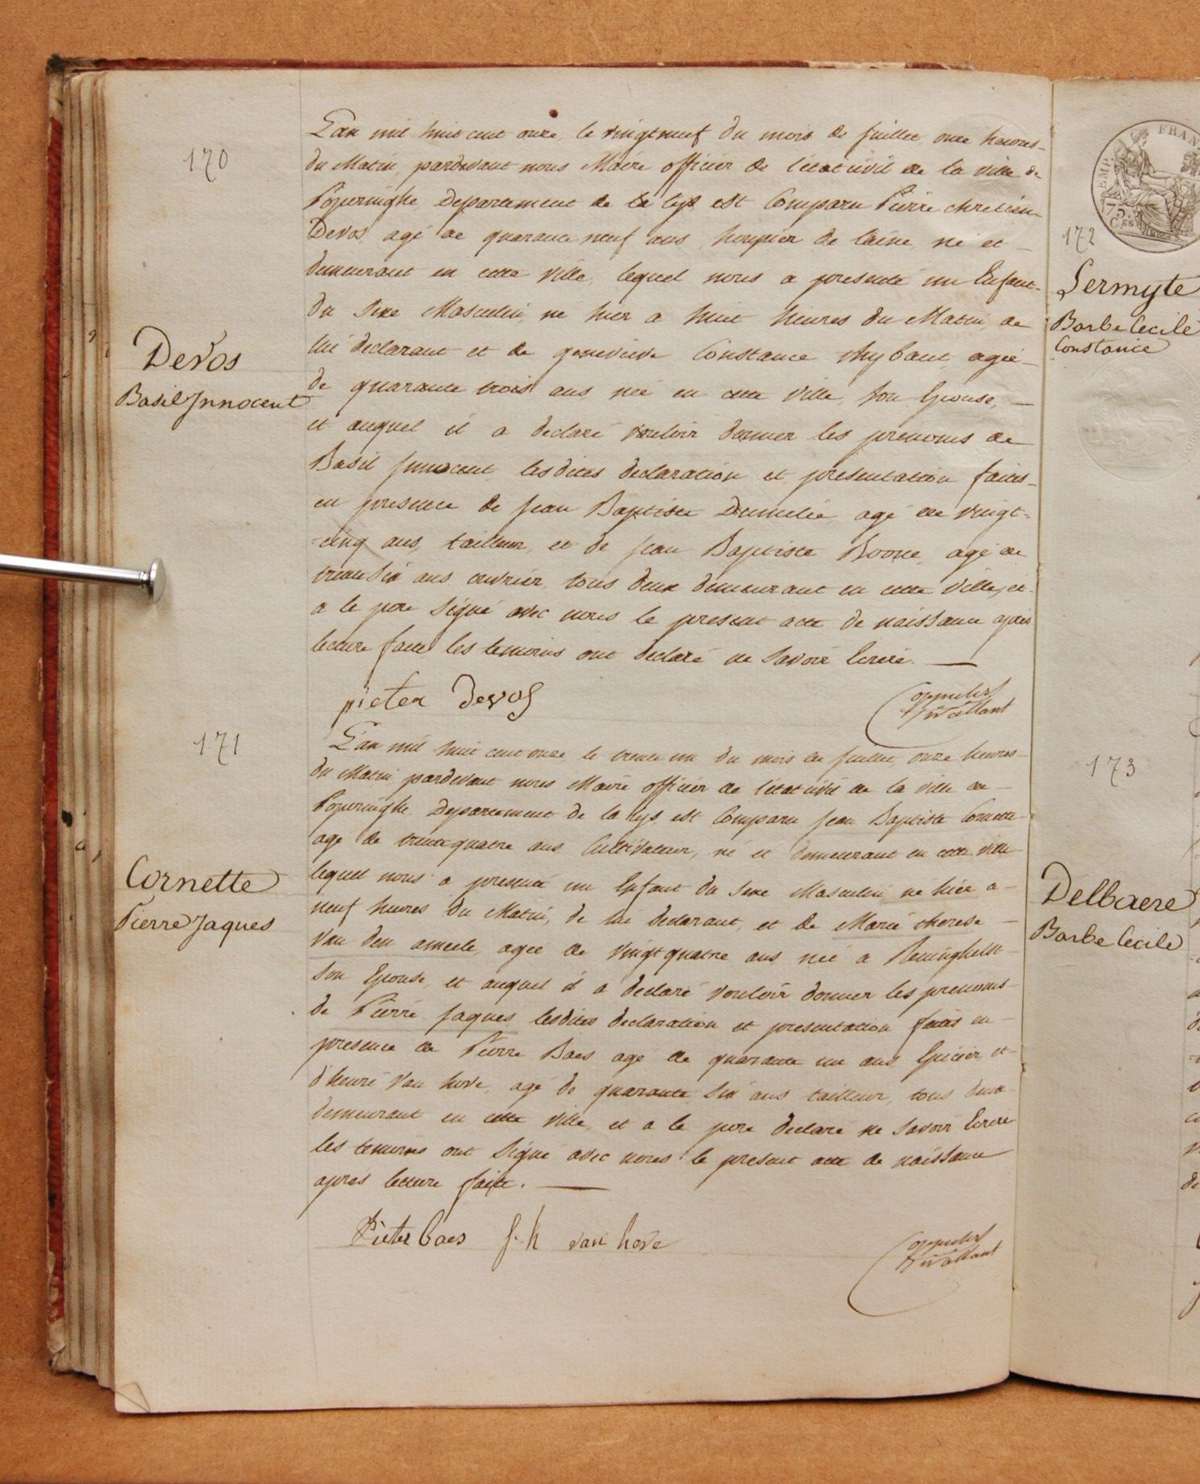 170
Devos
Basil Innocent
L'an mil huit cent onze, le vingt neuf du mois de Juillet onze heures
du Matin, pardevant nous Maire officier de l'etat civil de la ville de
Poperinghe Departement de la Lys est Comparu Pierre chretien
Devos, agé de quarante neuf ans, houpier de laine né et
demeurant en cette ville, lequel nous a presenté un Enfant
du Sexe Masculin, né hier a huit heures du Matin, de
lui declarant et de genevieve Constance thybaut, agée
de quarante trois ans née en cette ville, son Epouse,
et auquel il a declaré vouloir donner les prenoms de
Basil Innocent lesdites declaration et presentation faites
en presence de Jean Baptiste agé de vingt
cinq ans, tailleur, et de Jean Baptiste agé de
trente Six ans ouvrier tous deux demeurant en cette ville, et
a le pere Signé avec nous le present acte de naissance après
lecture faite les temoins ont declaré ne savoir Ecrire.
pieter Devos
171
Cornette
Pierre Jaques
L'an mil huit cent onze le trente un du mois de Juillet, onze heures
du Matin pardevant nous Maire officier de l'etat civil de la ville de
Poperinghe, Departement de la Lys est Comparu Jean Baptiste Cornette
agé de trente quatre ans Cultivateur, né et demeurant en cette ville
lequel nous a presenté un Enfant du Sexe Masculin, né hier a
neuf heures du Matin, de lui declarant, et de Marie therese
Van den ameele, agée de vingt quatre ans née a Reninghelst
Son Epouse, et auquel il a declaré vouloir donner les prenoms
de Pierre Jaques lesdites declaration et presentation faites en
presence de Pierre Baes agé de quarante un ans Epicier et
d'henri Van hove, agé de quarante Six ans tailleur, tous deux
demeurant en cette ville, et a le pere declaré ne savoir Ecrire
les temoins ont Signé avec nous le present acte de naissance
après lecture faite.
Pieter baes J. h van hove
FRAN
172
Sermyte
Barbe Cecile
Constance
173
Delbaere
Barbe Cecile